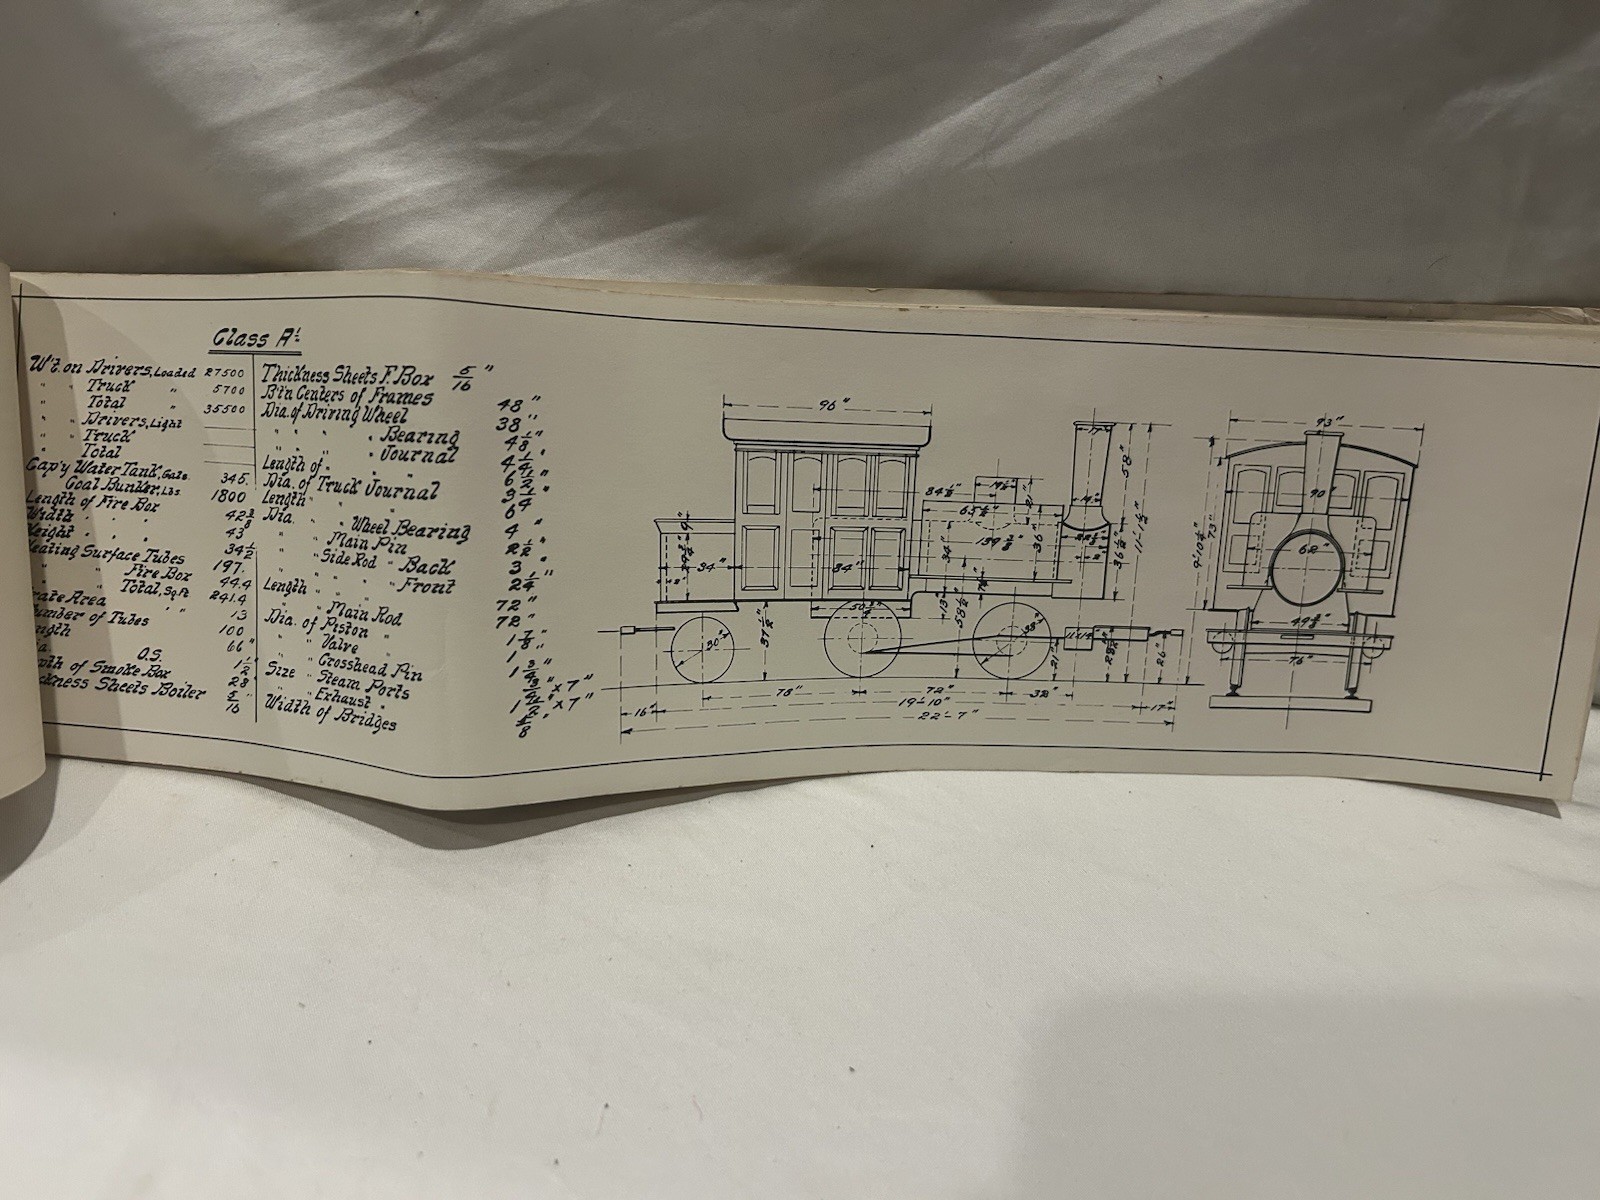 Class A1
W't. on Drivers, Loaded 27500
" " Truck " 5700
" " Total " 35500
" " Drivers, Light
" " Truck
" " Total
Cap'y Water Tank, Gals. 345.
Coal Bunker, Lbs. 1800
Length of Fire Box 42 3/8
Width " " " 43
Height " " " 34 1/2
Heating Surface Tubes 197.
" " Fire Box 44.4
" " Total, Sq. Ft 241.4
Grate Area " " 13
Number of Tubes 100
Length 66"
O.S. 1 1/2"
of Smoke Box 28"
Thickness Sheets Boiler 5/16"
Thickness Sheets F. Box 5/16"
Bt'n Centers of Frames 48"
Dia. of Driving Wheel 38"
" " " Bearing 4 1/8"
" " " Journal 4 1/4"
Length of " " 6 1/2"
Dia. of Truck Journal 3 1/4"
Length " " " 6"
Dia. " Wheel Bearing 4"
" " Main Pin 2 1/2"
" " Side Rod " Back 3"
" " " " Front 2 1/4"
Length " " " 72"
" " Main Rod 72"
Dia. of Piston " 1 7/8"
" " Valve " 1"
" " Crosshead Pin 1 3/4"
Size " Steam Ports 3/4" x 7"
" " Exhaust " 1 1/2" x 7"
Width of Bridges 5/8"
96"
17"
58"
34 1/2"
19 1/2"
21"
65 1/2"
14"
11'-1 1/2"
9"
34"
84"
34"
139 3/8"
36"
36 1/2"
2"
2"
50 3/4"
13"
58 1/2"
30"
37 1/2"
38"
21"
11"x14"
26"
78"
72"
32"
19'-10"
16"
17"
22'-7"
93"
90"
73"
9'-10 1/2"
62"
49 3/8"
76"